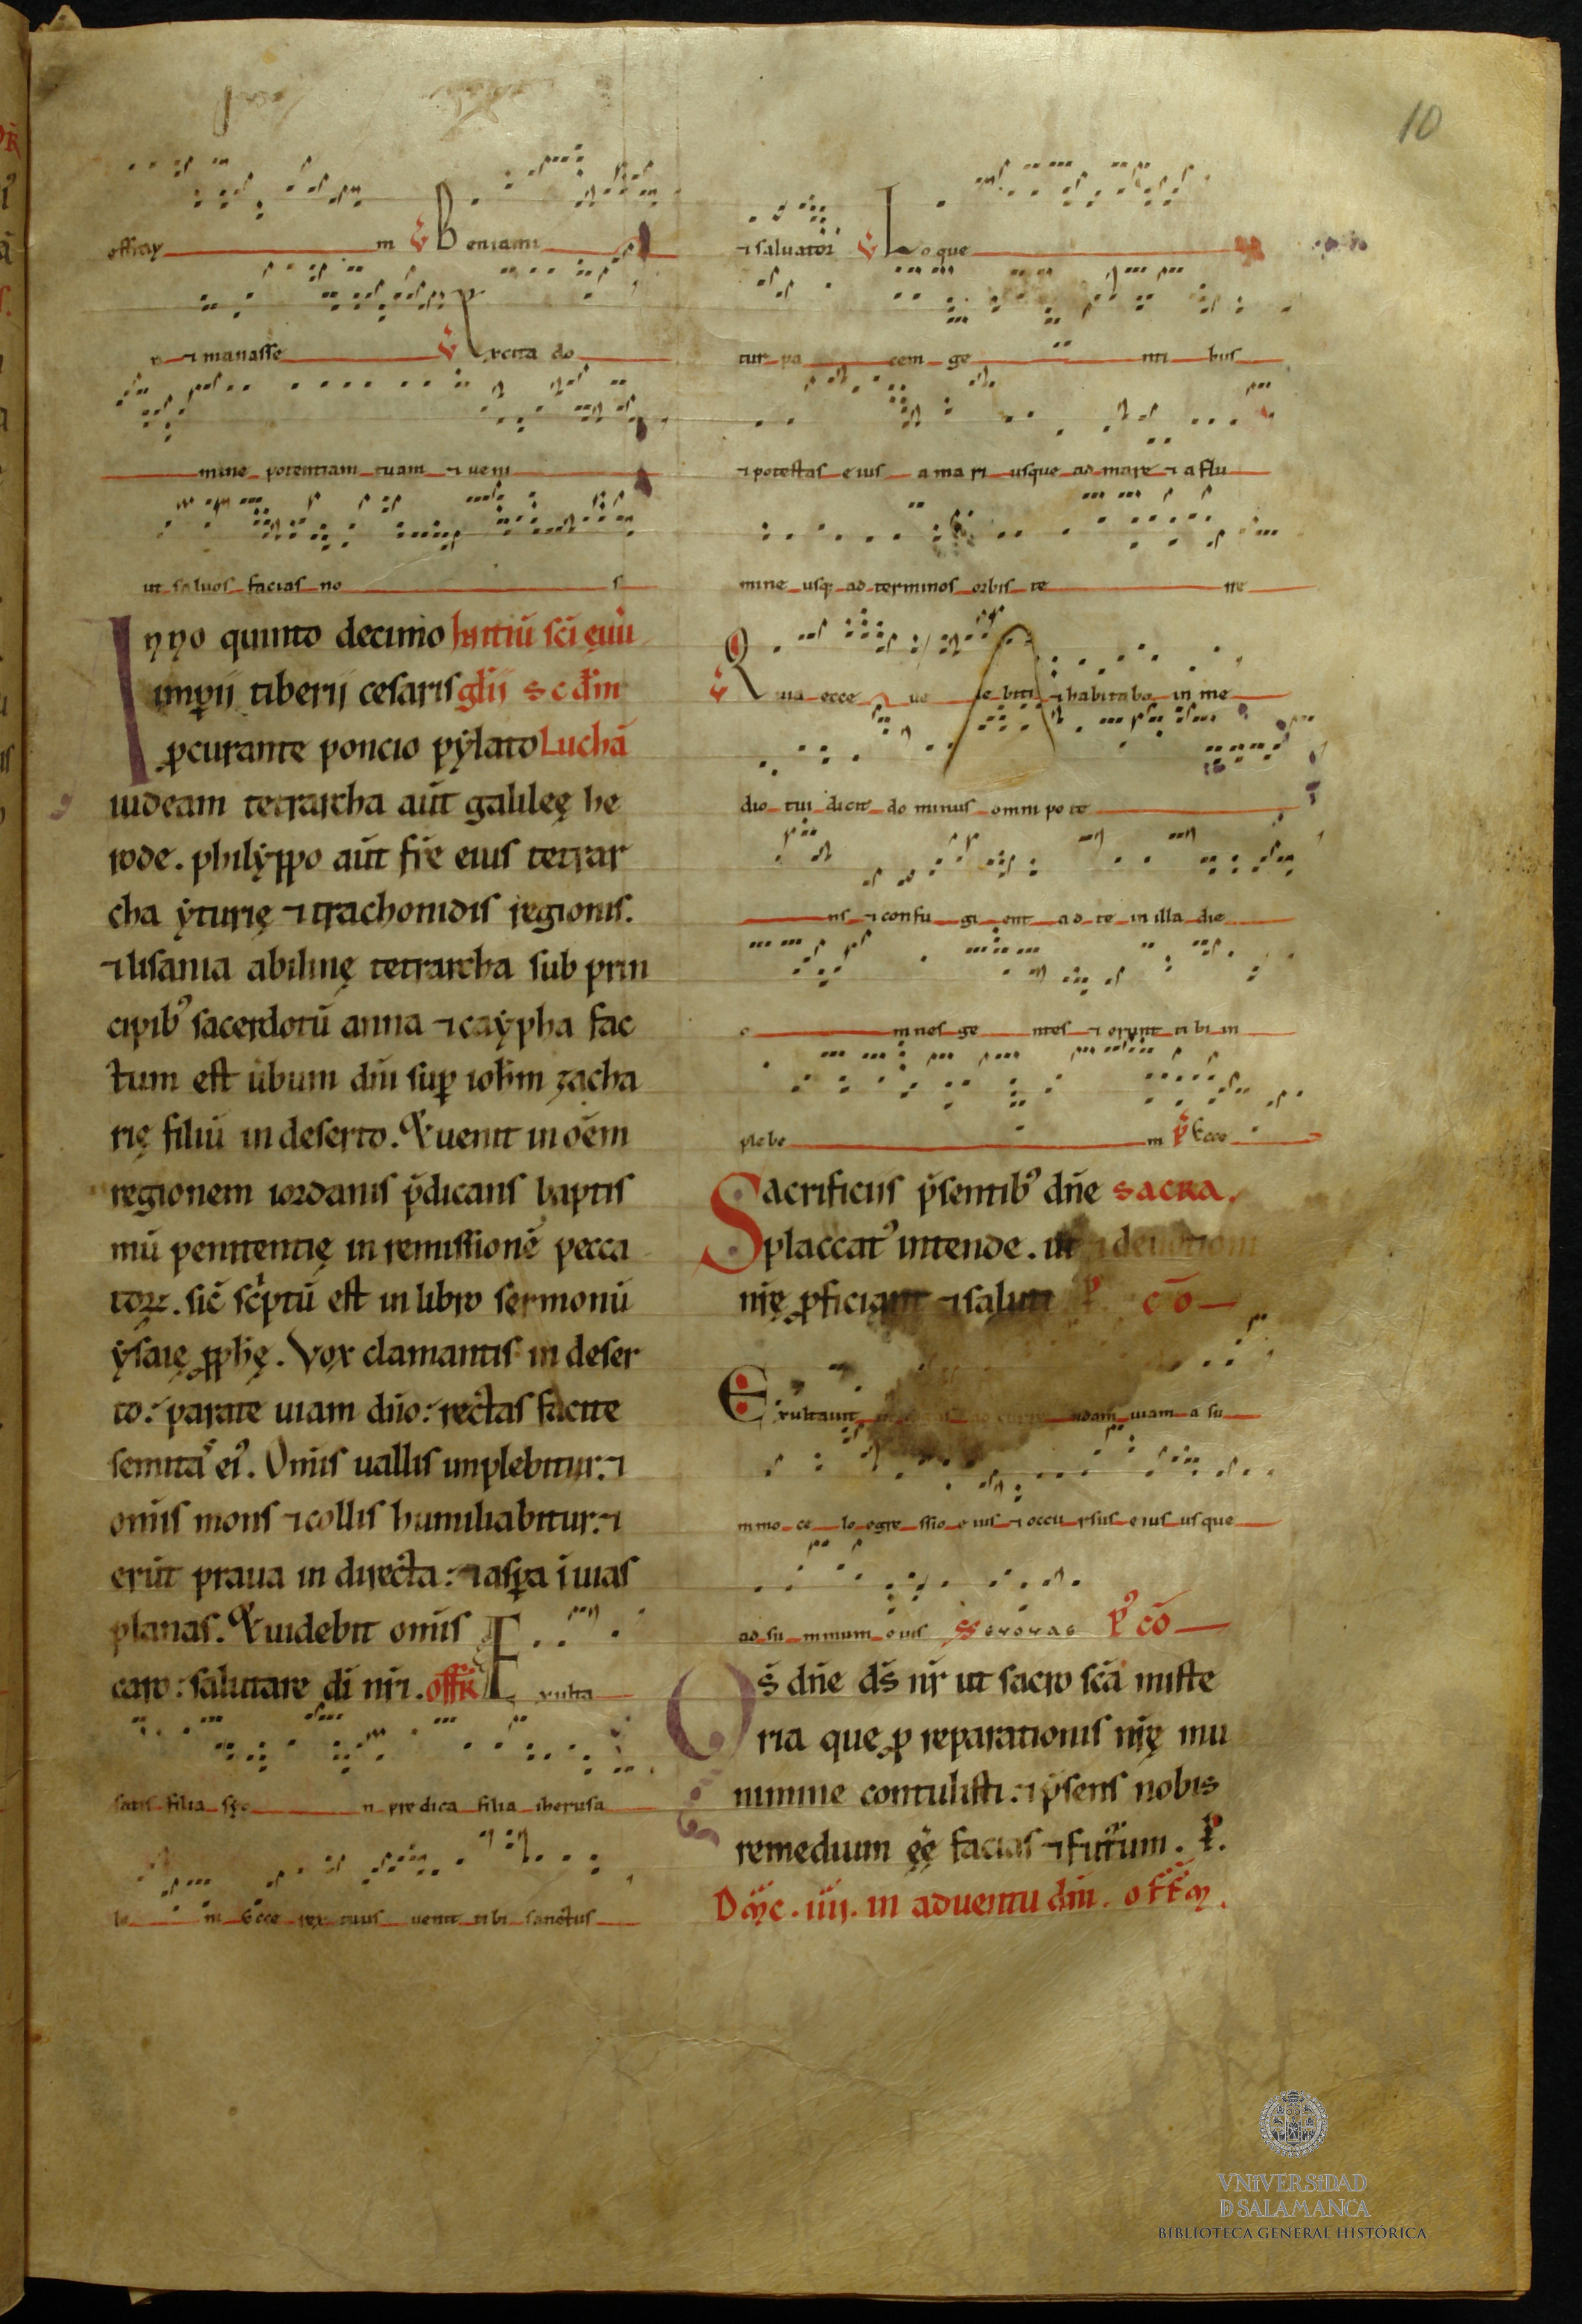 10
effray m ℣ Beniami
n ⁊ manasse ℣ Excita do
mine potentiam tuam ⁊ ueni
ut saluos facias no s
Inño quinto decimo Initiū sc̄i euu̅
imp̄ii tiberij cesaris gl̄ii scd̄m
ꝓcurante poncio pẏlato Luchā
iudeam tetrarcha aūt galileę he
rode. philẏppo aūt fr̄e eius tetrar
cha ẏturię ⁊ trachonidis regionis.
⁊ lisania abilinę tetrarcha sub prin
cipibꝰ sacerdotū anna ⁊ caẏpha fac
tum est u̅bum dn̄i suꝑ ioh̄m zacha
rię filiū in deserto. Et uenit in oēm
regionem iordanis p̄dicans baptis
mū penitentię in remissionē pecca
toꝝ. sic̄ sc̍ptū est in libro sermonū
ẏsaię ꝓph̄ę. Vox clamantis in deser
to: parate uiam dn̄o: rectas facite
semitas eiꝰ. Om̄is uallis implebitur: ⁊
om̄is mons ⁊ collis humiliabitur: ⁊
erūt praua in directa: ⁊ asꝑa ī uias
planas. Et uidebit om̄is
caro: salutare dī nr̄i. offr̄ Exulta
satis filia syo n predica filia iherusa
le m Ecce rex tuus uenit tibi sanctus
⁊ saluator ℣ Loque
tur pa cem ge nti bus
⁊ potestas eius a mari usque ad mare ⁊ a flu
mine usqꝫ ad terminos orbis te rre
℣ Quia ecce ue ⁊ habitabo in me
dio tui dicit dominus omnipote
ns ⁊ confu gi ent ad te in illa die
o mnes ge ntes ⁊ erunt tibi in
plebe m P̍ Ecce
Sacrificiis p̄sentibꝰ dn̄e sacra.
placcatꝰ intende. ut ⁊ deuotioni
nr̄ę ꝓficiant ⁊ saluti P̄ cō
Exultauit ndam uiam a su
mmo ce lo egre ssio eius ⁊ occu rsus eius usque
ad su mmum eius Seuouae Pꝰ cō
Qs̄ dn̄e ds̄ nr̄ ut sacro sc̄a miste
ria que ꝓ reparationis nr̄ę mu
nimine contulisti: ⁊ p̄sens nobis
remedium eę̄ facias ⁊ futurum. P̄.
Dn̄ic. iiij. in aduentu dn̄i. offm̄.
VNIVERSIDAD
D SALAMANCA
BIBLIOTECA GENERAL HISTÓRICA